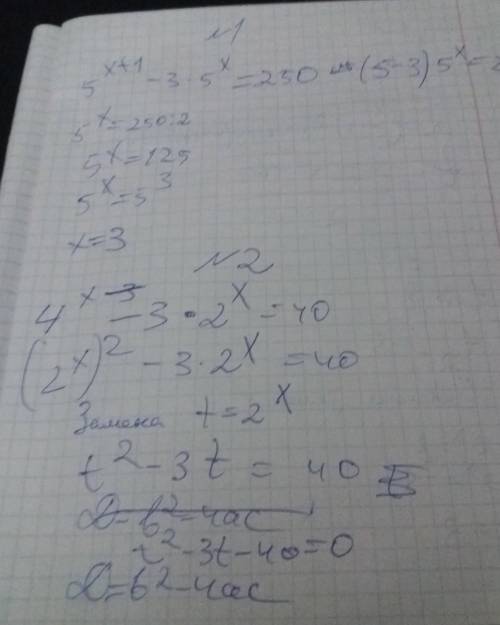 №1
5^{x+1} - 3 · 5^x = 250 (5-3) 5^x =
5^x = 250:2
5^x = 125
5^x = 5^3
x = 3
№2
4^x - 3 · 2^x = 40
(2^x)^2 - 3 · 2^x = 40
Замена t = 2^x
t^2 - 3t = 40
D = b^2 - 4ac
t^2 - 3t - 40 = 0
D = b^2 - 4ac